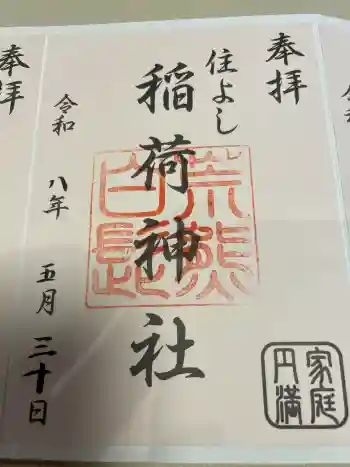 奉拝
住よし
稲荷神社
荒熊
白髭
令和 八年 五月 三十日
家庭
円満
奉拝
令和